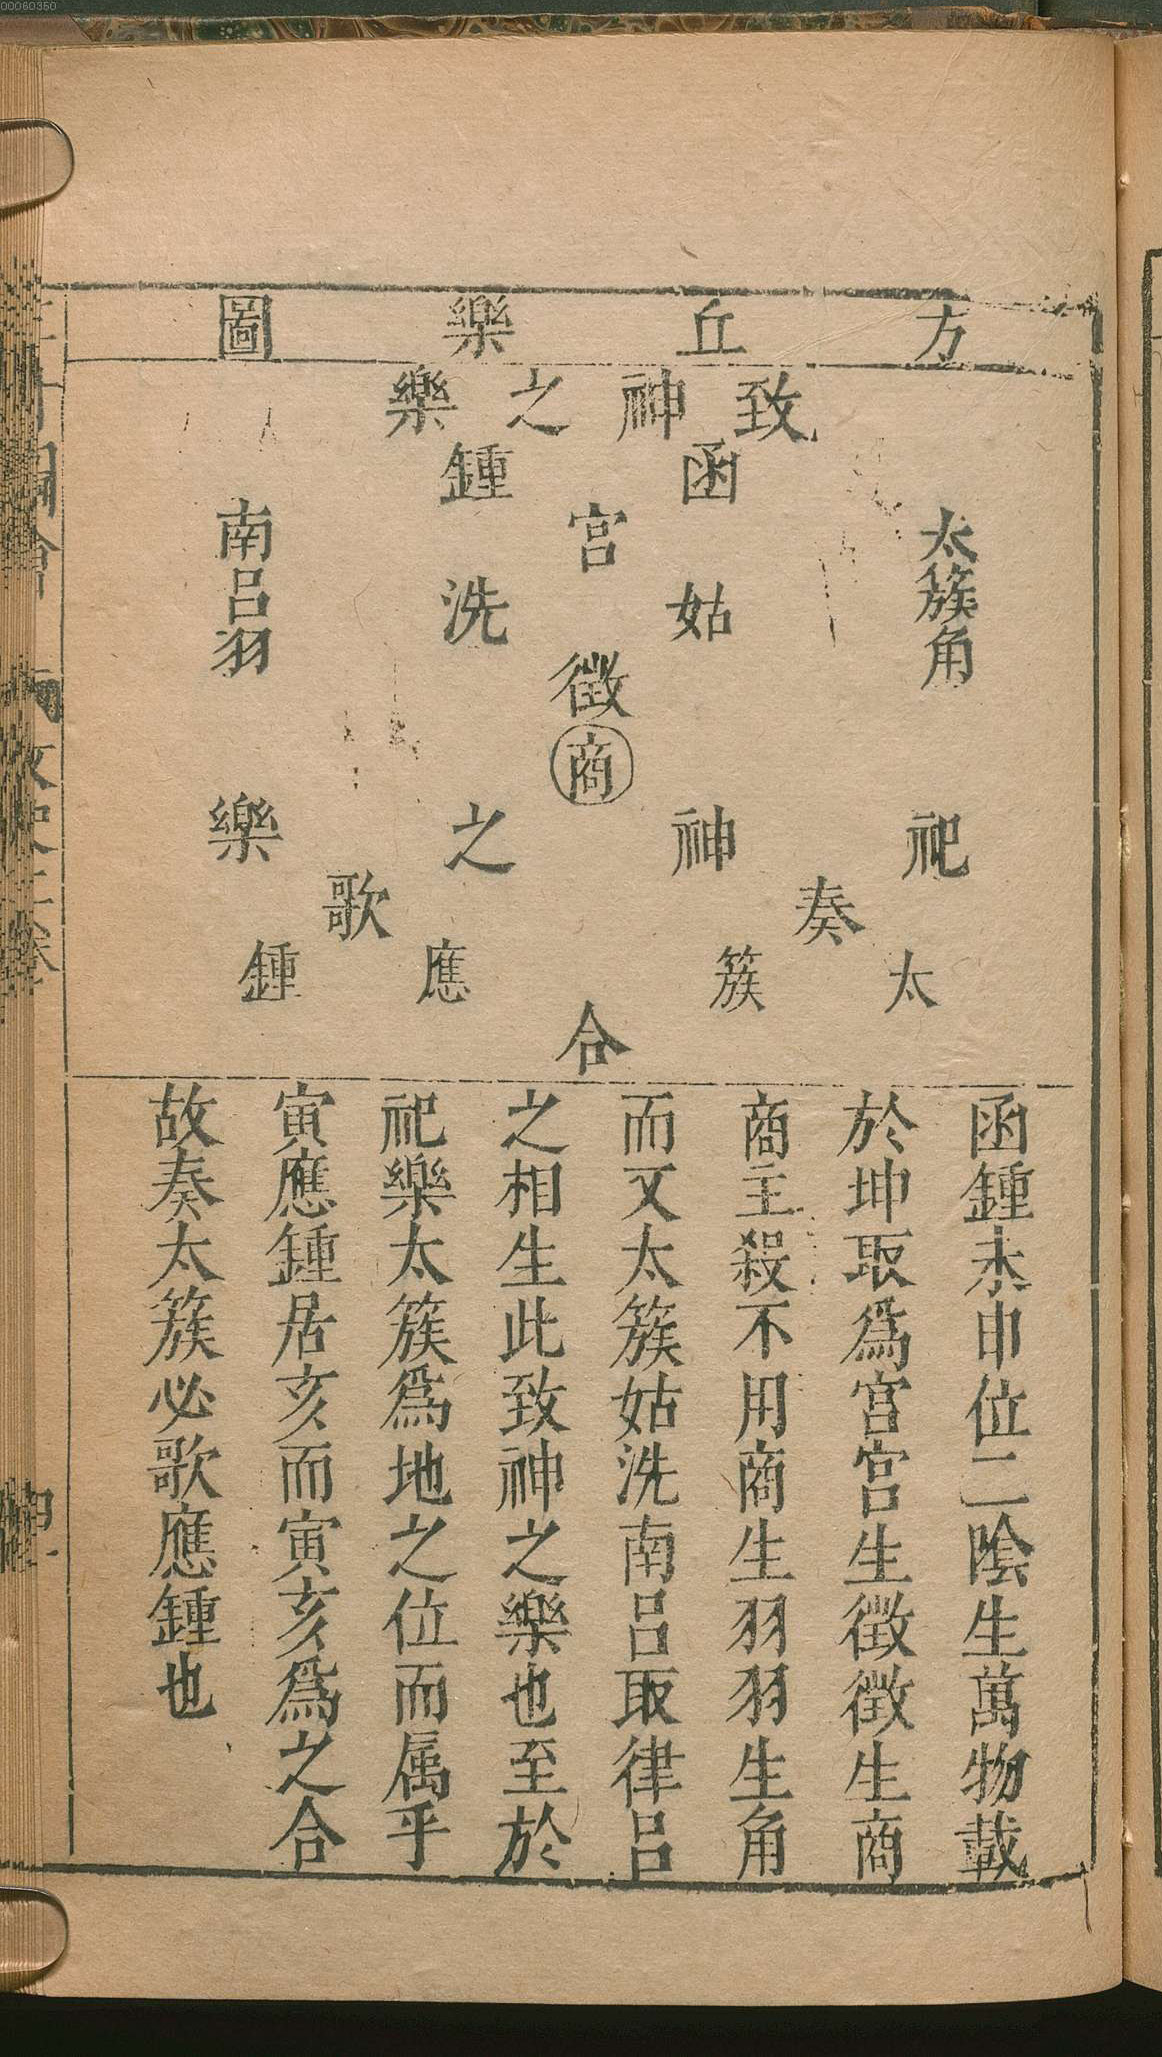 00060350
方丘樂圖
致神之樂
函鍾
宮
姑洗
徵
商
太簇角
南呂羽
祀神之樂
奏
太簇
歌
應鍾
合
函鍾未申位二陰生萬物載
於坤取爲宮宮生徵徵生商
商主殺不用商生羽羽生角
而又太簇姑洗南呂取律呂
之相生此致神之樂也至於
祀樂太簇爲地之位而属乎
寅應鍾居亥而寅亥爲之合
故奏太簇必歌應鍾也